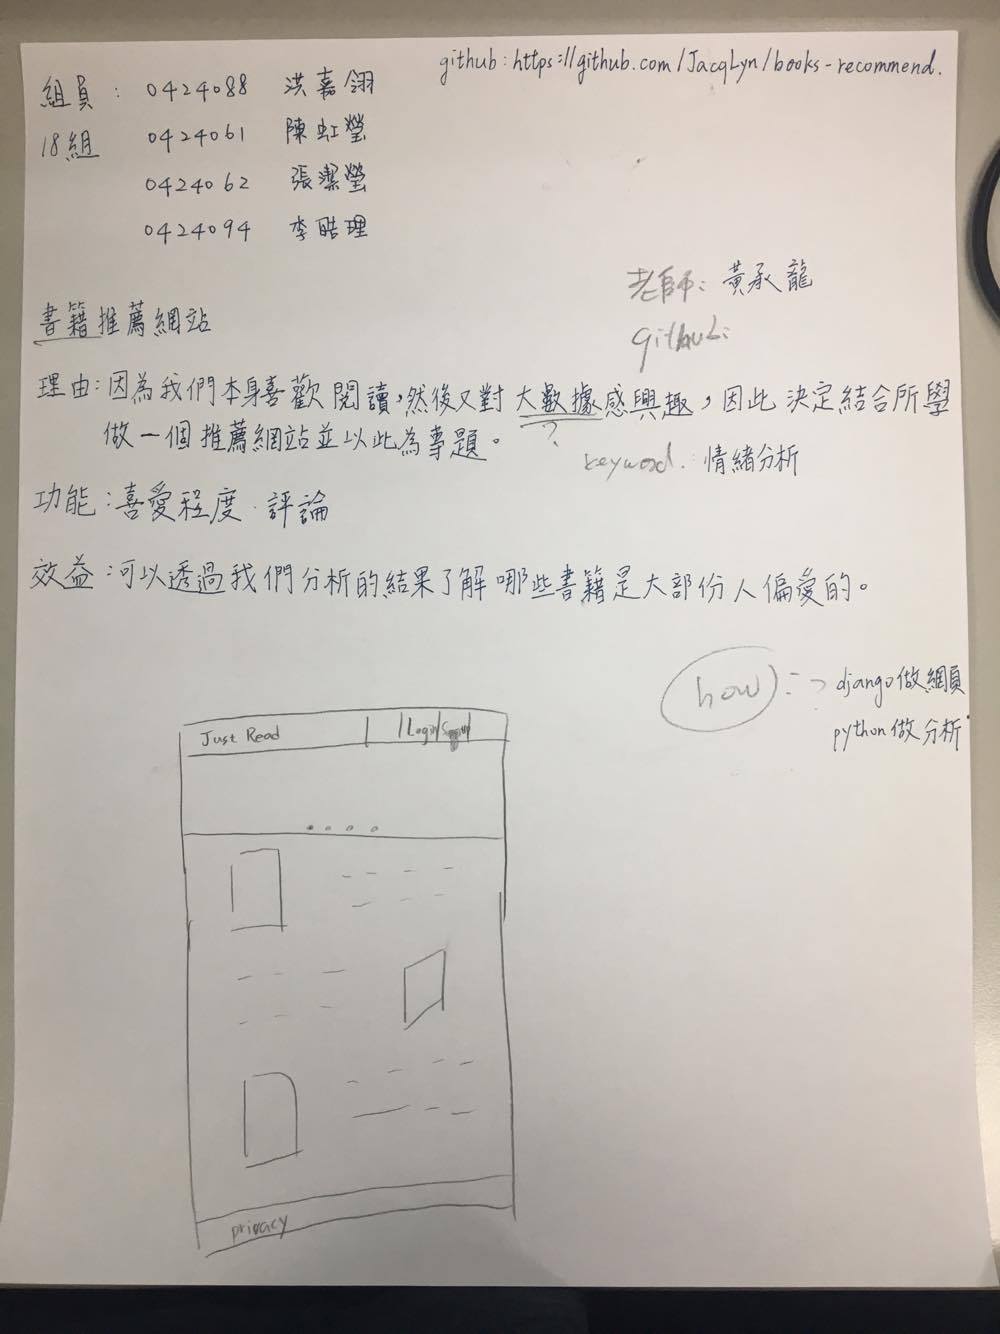 github:https://github.com/JacqLyn/books-recommend.
組員: 0424088 洪嘉翎
18組 0424061 陳虹瑩
0424062 張潔瑩
0424094 李晧理
老師: 黃承龍
github:
書籍推薦網站
理由:因為我們本身喜歡閱讀,然後又對大數據感興趣,因此決定結合所學
做一個推薦網站並以此為專題。
?
keyword. 情緒分析
功能:喜愛程度.評論
效益:可以透過我們分析的結果了解哪些書籍是大部份人偏愛的。
how: django做網頁
python做分析
Just Read Login
privacy